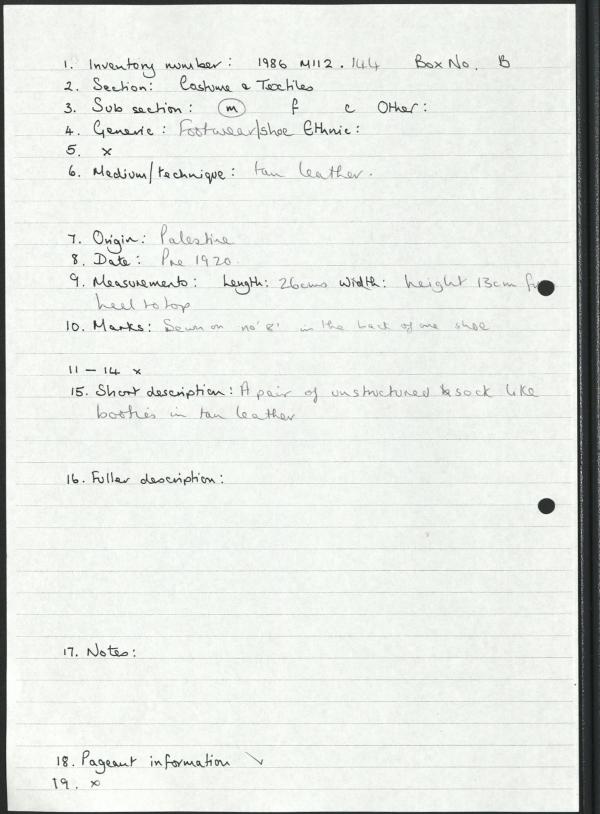 1. Inventory number: 1986 M112.144 Box No. B
2. Section: Costume & Textiles
3. Sub section: m f c Other:
4. Generic: Footwear/shoe Ethnic:
5. x
6. Medium/technique: tan leather.
7. Origin: Palestine
8. Date: Pre 1920.
9. Measurements: Length: 26cms Width: height 13cm
heel to top
10. Marks: Sewn on no '8' in the back of one shoe
11 – 14 x
15. Short description: A pair of unstructured sock like
booties in tan leather
16. Fuller description:
17. Notes:
18. Pageant information
19. x